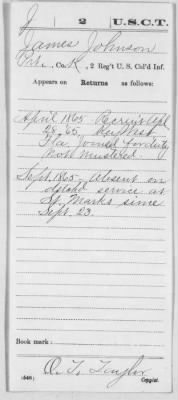 J 2 U.S.C.T.
James Johnson
Pvt., Co. K, 2 Reg't U. S. Col'd Inf.
Appears on
Returns as follows:
April 1865 Recruit Apl.
28, 65, Key West
Fla Joined for duty
Not Mustered.
Sept. 1865 Absent on
detchd service at
St. Marks since
Sept. 23.
Book mark:
(546)
Copyist.